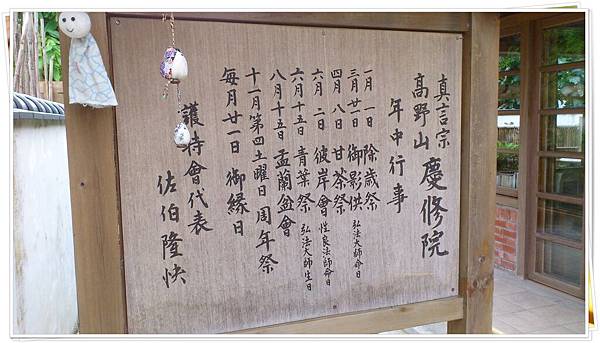 真言宗
高野山 慶修院
年中行事
一月一日 除歲祭
三月廿一日 御影供 弘法大師命日
四月八日 甘茶祭
六月二日 彼岸會 性良法師命日
六月十五日 青葉祭 弘法大師生日
八月十五日 盂蘭盆會
十一月第四土曜日 周年祭
每月廿一日 御縁日
護持會代表
佐伯隆快